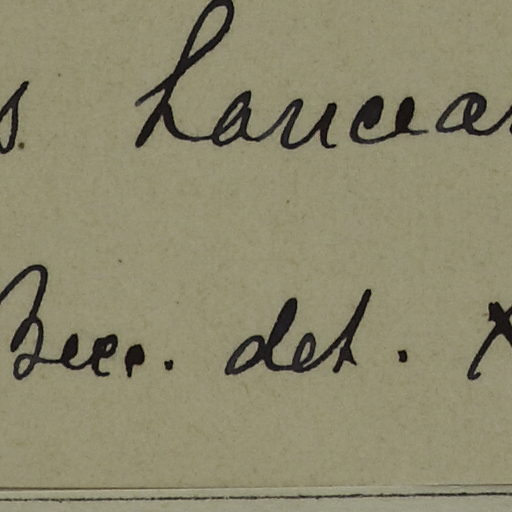 s Lancear
Becc. det. X